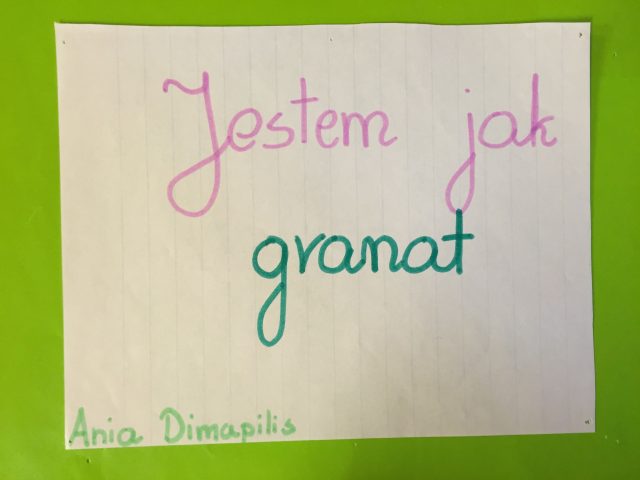 Jestem jak
granat
Ania Dimapilis